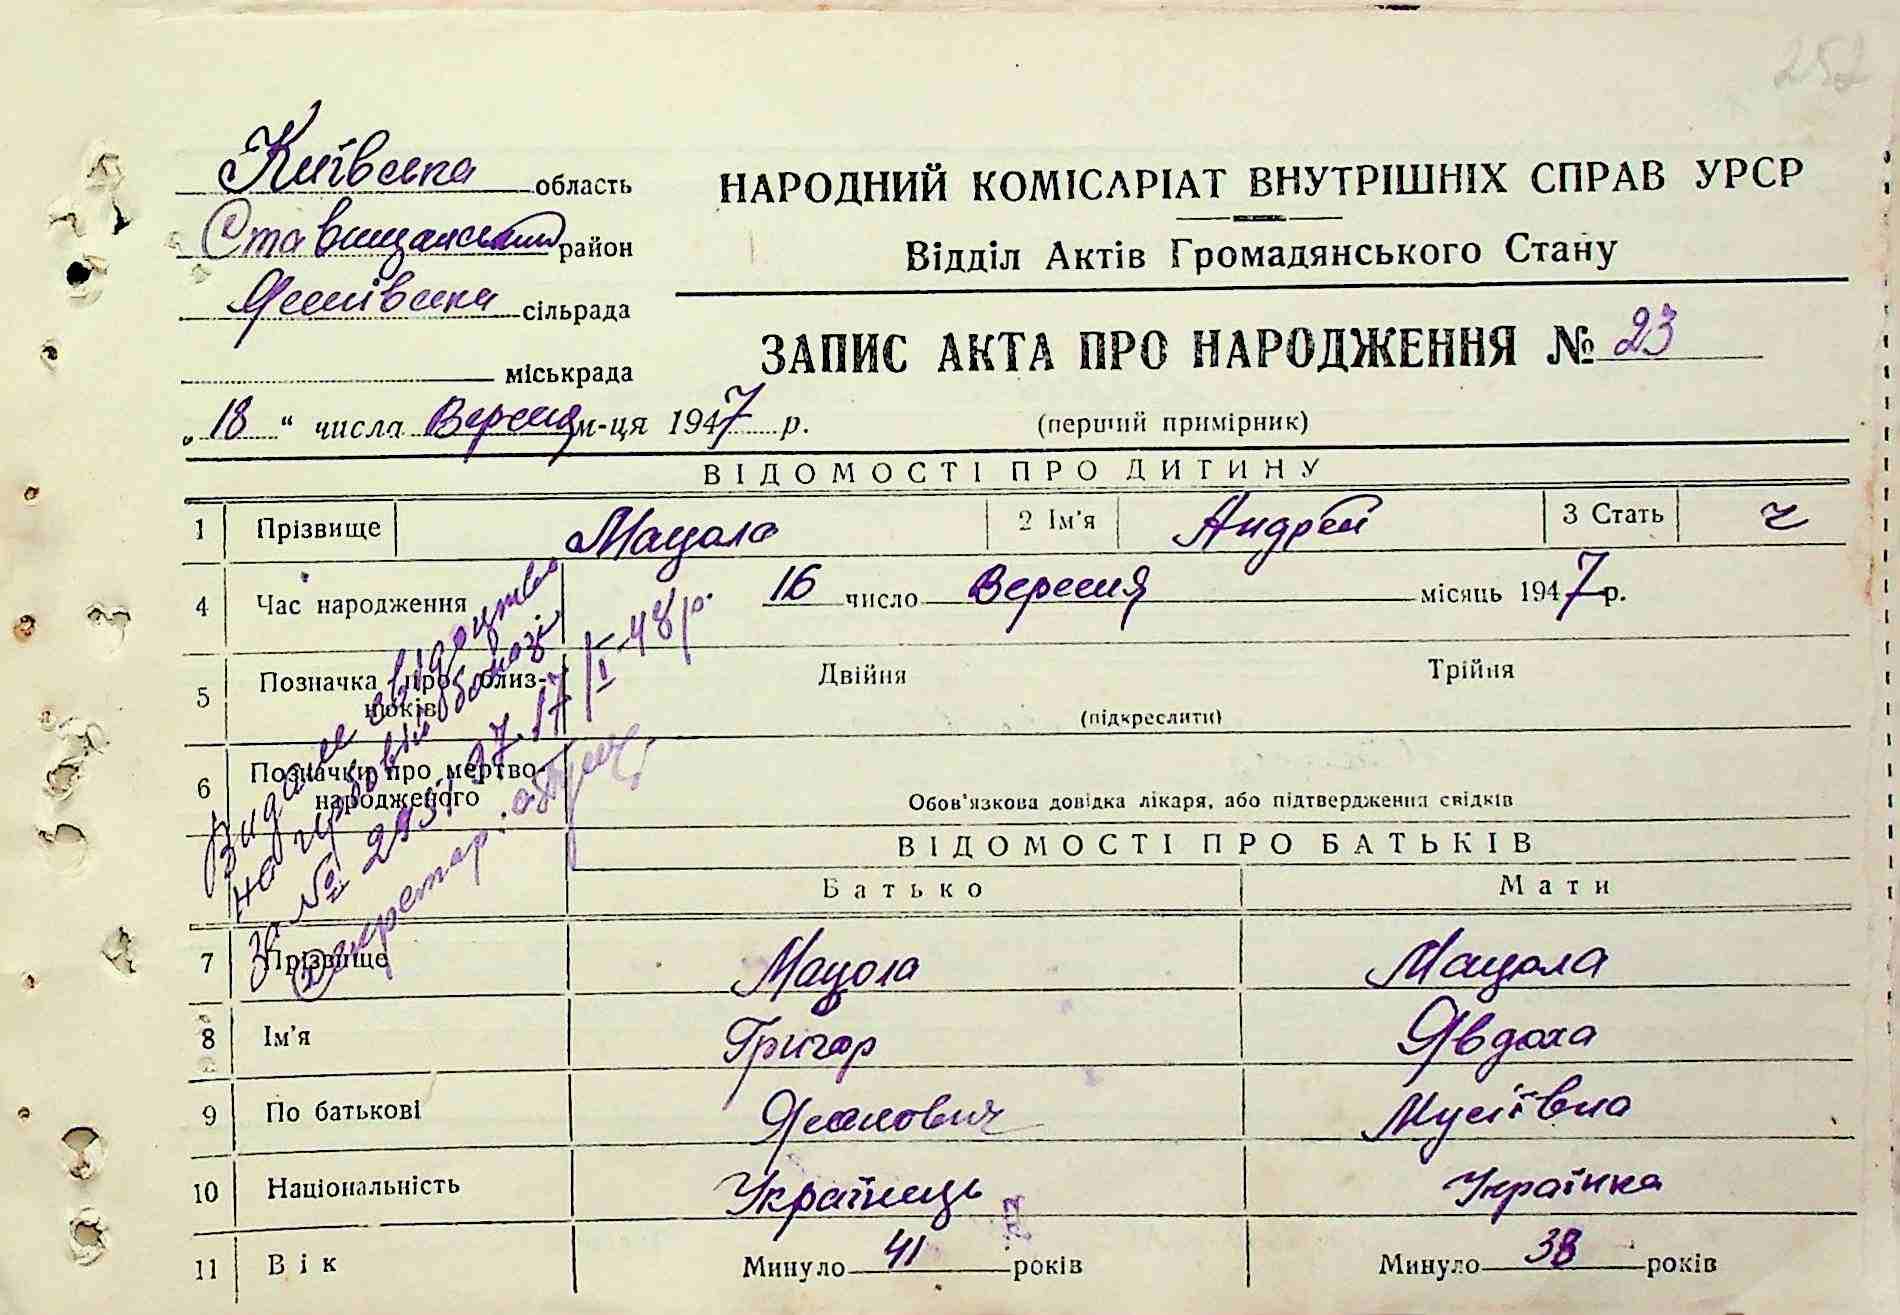 252
Київська область
Ставищанський район
Яшківська сільрада
міськрада
НАРОДНИЙ КОМІСАРІАТ ВНУТРІШНІХ СПРАВ УРСР
Відділ Актів Громадянського Стану
ЗАПИС АКТА ПРО НАРОДЖЕННЯ № 23
„18" числа Вересня м-ця 1947 р.
(перший примірник)
ВІДОМОСТІ ПРО ДИТИНУ
1 Прізвище Мацола 2 Ім'я Андрей 3 Стать ч
4 Час народження 16 число Вересня місяць 1947 р.
5 Позначка про близнюків Двійня Трійня
(підкреслити)
6 Позначки про мертвонародженого
Обов'язкова довідка лікаря, або підтвердження свідків
Видане свідоцтво
на
за № 17/I-48 р.
Секретар:
ВІДОМОСТІ ПРО БАТЬКІВ
Батько Мати
7 Прізвище Мацола Мацола
8 Ім'я Григор Явдоха
9 По батькові Мусіївна
10 Національність Українець Українка
11 Вік Минуло 41 років Минуло 38 років